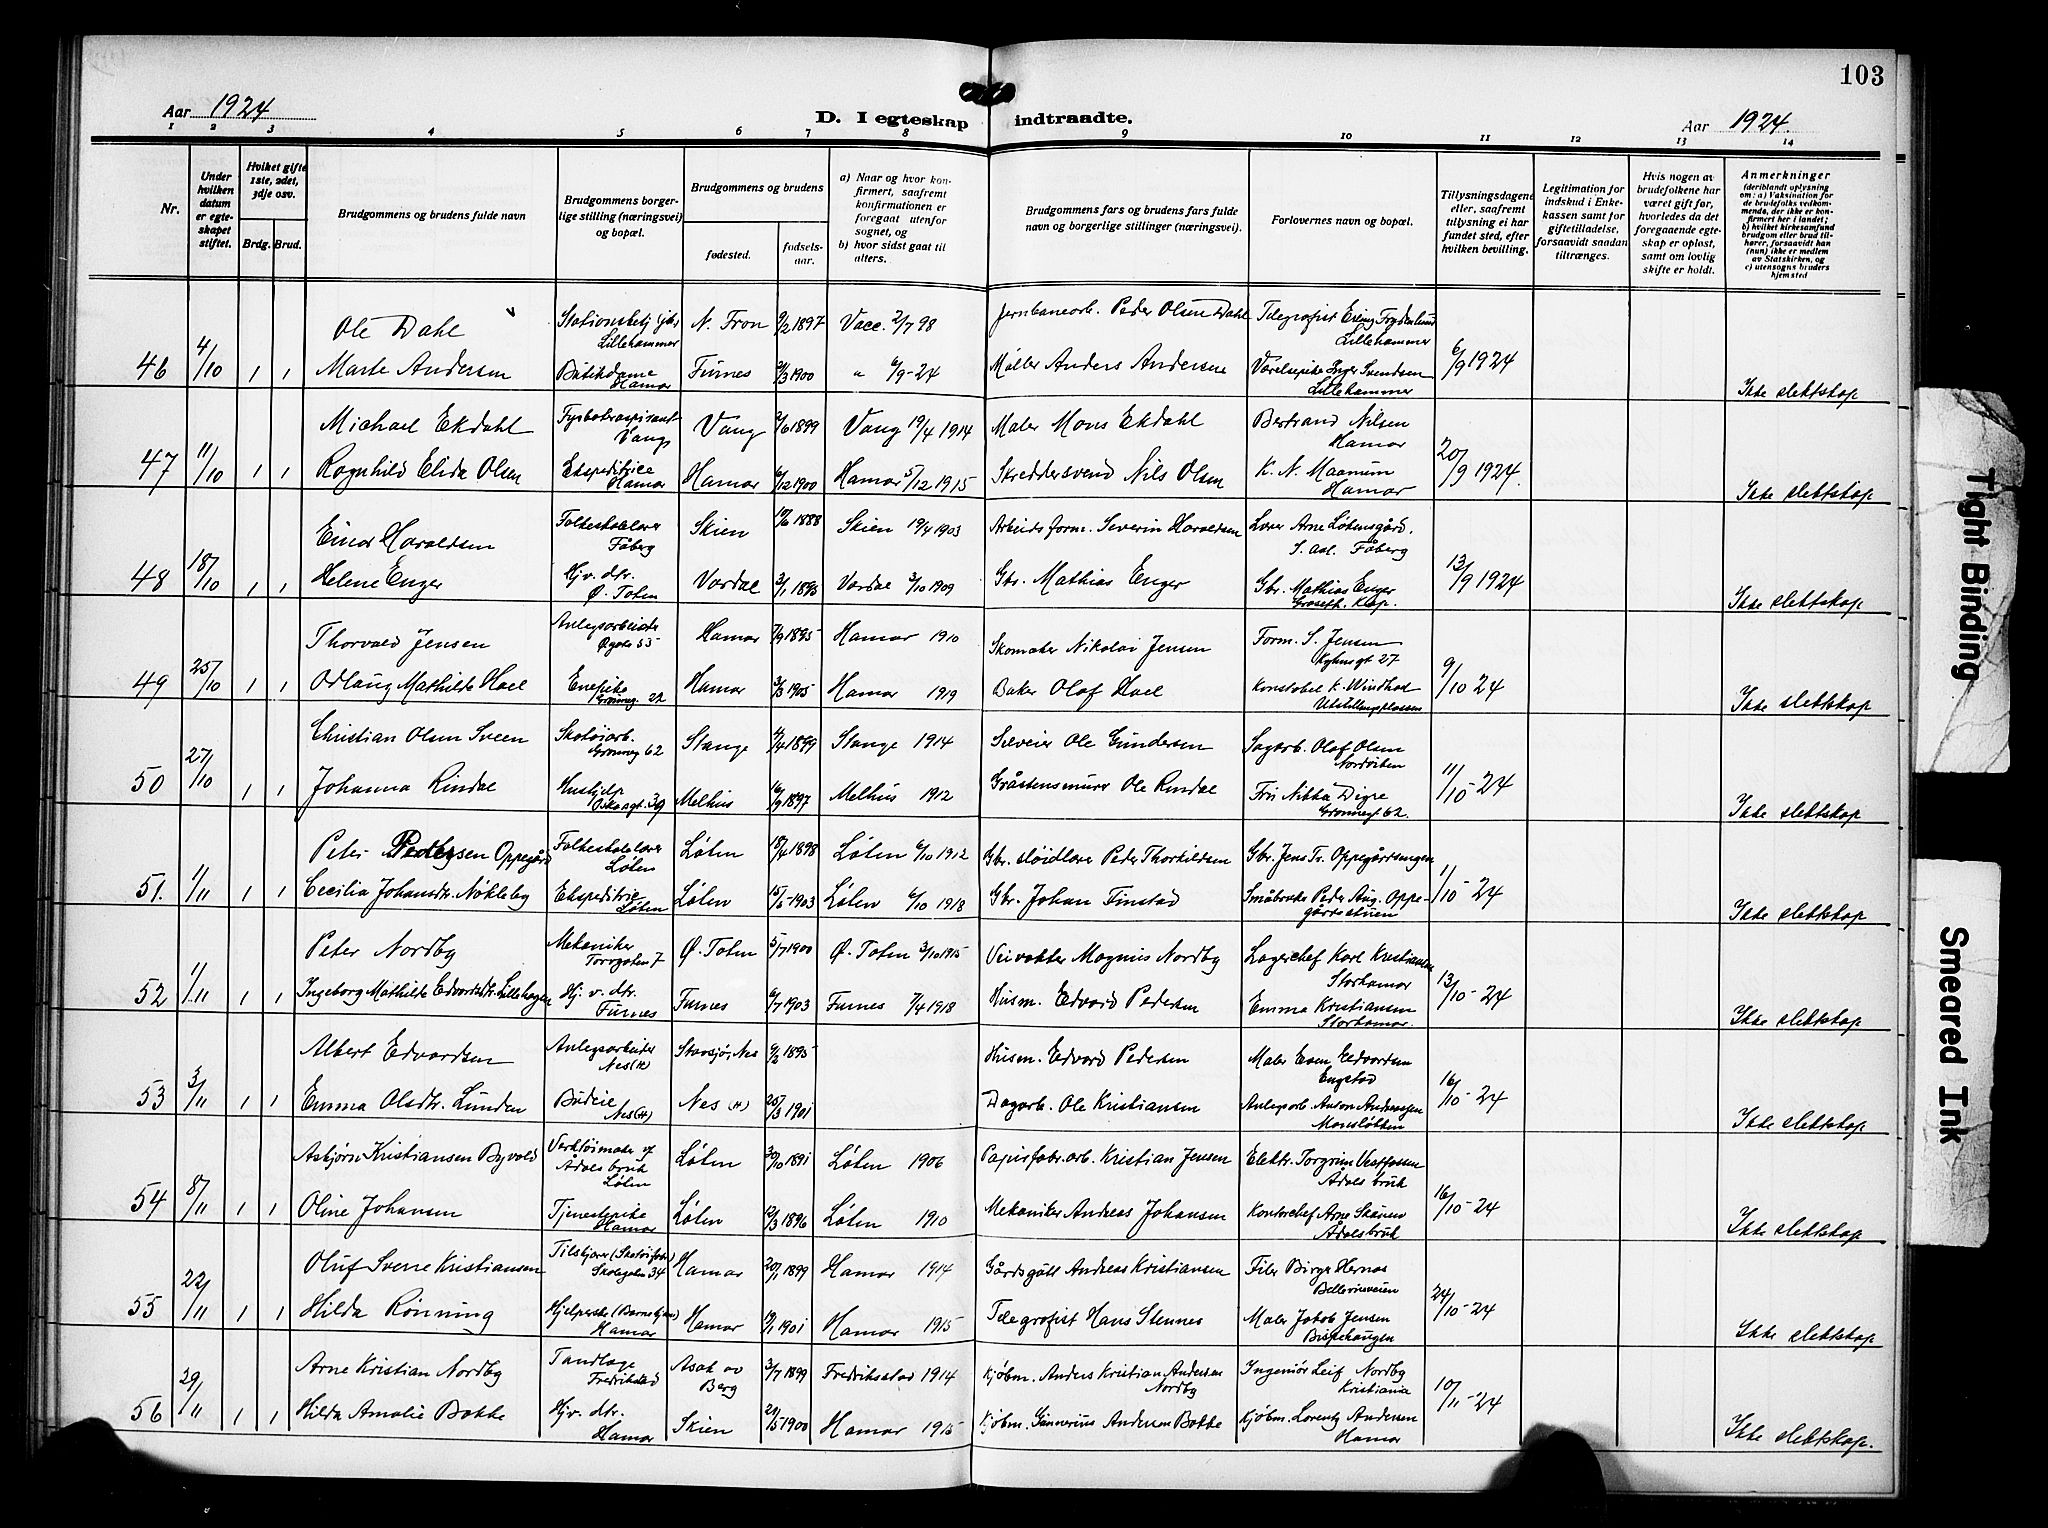 103
Aar 1924
D. I egteskap indtraadte.
Aar 1924.
1 2 3 4 5 6 7 8 9 10 11 12 13 14
Nr.
Under hvilken datum er egteskapet stiftet.
Hviket gifte 1ste, 2det, 3dje osv.
Brdg. Brud.
Brudgommens og brudens fulde navn
Brudgommens borgerlige stilling (næringsvei) og bopæl.
Brudgommens og brudens
fødested.
fødselsaar.
a) Naar og hvor konfirmert, saafremt konfirmationen er foregaat utenfor sognet, og
b) hvor sidst gaat til alters.
Brudgommens fars og brudens fars fulde navn og borgerlige stillinger (næringsvei).
Forlovernes navn og bopæl.
Tillysningsdagene eller, saafremt tillysning ei har fundet sted, efter hvilken bevilling.
Legitimation for indskud i Enkekassen samt for giftetilladelse, forsaavidt saadan tiltrænges.
Hvis nogen av brudefolkene har været gift før, hvorledes da det foregaaende egteskap er opløst, samt om lovlig skifte er holdt.
Anmerkninger
(deriblandt oplysning om: a) Vaksination for de brudefolks vedkommende, der ikke er konfirmert her i landet; b) hvilket kirkesamfund brudgom eller brud tilhører, forsaavidt han (hun) ikke er medlem av Statskirken, og c) utensogns bruders hjemsted
Ole Dahl Stationsbetj. Lillehammer N. Fron 9/2 1897 Vacc. 2/7 98 Jernbanearb. Peder Olsen Dahl Telegrafist Erling Frydenlund Lillehammer
46 4/10 1 1 Marte Andersen Butikdame Hamar Furnes 1900 " 6/9-24 Møller Anders Andersen Værelsepike Inger Svendsen Lillehammer 6/9 1924 Ikke slektskap
Michael Ekdahl Fysbøteraspirant Vang Vang 2/6 1899 Vang 19/4 1914 Maler Mons Ekdahl Bertrand Nilsen Hamar
47 11/10 1 1 Ragnhild Elida Olsen Ekspeditrice Hamar Hamar 6/12 1900 Hamar 5/12 1915 Skreddersvend Nils Olsen K. N. Maanum Hamar 20/9 1924. Ikke slektskap
Einar Haraldsen Folkeskolelærer Fåberg Skien 1888 Skien 19/4 1903 Arbeidsform. Severin Haraldsen Lærer Arne Løkensgård. S. Aal. Fåberg
48 18/10 1 1 Helene Enger Hjv. dtr. Ø. Toten Vardal 3/1 1893 Vardal 3/10 1909 Gbr. Mathias Enger Gbr. Mathias Enger 13/9 1924 Ikke slektskap
Thorvald Jensen Anlegsarbeider Øgate 55 Hamar 7/9 1895 Hamar 1910 Skomaker Nikolai Jensen Form. S. Jensen Kyhnsgt 27
49 25/10 1 1 Odlaug Mathilde Hael Enepike Grønneg. 22 Hamar 3/3 1905 Hamar 1919 Baker Olaf Hael Konstabel K. Windhad Utstillingsplassen 9/10-24 Ikke slektskap
Christian Olsen Sveen Skotøiarb. Grønneg 62 Stange 1899 Stange 1914 Sæveier Ole Gundersen Sagarb. Olaf Olsen Nordviken
50 27/10 1 1 Johanna Rindal Hushjelp Melhus 1897 Melhus 1912 Gråstensmurer Ole Rindal Frú Nikka Digre Grønnegt 62. 11/10-24 Ikke slektskap
Peter Pedersen Oppegård Folkeskolelærer Løten Løten 18/4 1898 Løten 6/10 1912 Gbr. sløidlærer Peder Thorkildsen Gbr. Jens Tr. Oppegårdsengen
51. 1/11 1 1 Cecilia Johansdtr. Nøkleby Ekspeditrice Løten Løten 15/5-1903 Løten 6/10 1918 Gbr. Johan Finstad Småbruker Peder Aug. Oppegårdsstuen 11/10-24 Ikke slektskap
Peter Nordby Mekaniker Torvgaten 7 Ø. Toten 5/7 1900 Ø. Toten 3/10 1915 Veivokter Magnus Nordby Lagerchef Karl Kristiansen Storhamar
52 1/11 1 1 Ingeborg Mathilde Edvardsdtr. Lillehagen Hj. v. dtr. Furnes Furnes 6/7 1903 Furnes 7/4 1918 Husm. Edvard Pedersen Emma Kristiansen Storhamar. 13/10-24 Ikke slektskap
Albert Edvardsen Anlegsarbeider Nes (H) Stavsjø, Nes 6/2 1895 Husm. Edvard Pedersen Maler Even Edvardsen Engstad
53 3/11 1 1 Emma Olsdtr. Lunden Budeie Nes (H) Nes (H) 25/3 1901 Dagarb. Ole Kristiansen Anlegsarb. Anton Andreassen 16/10-24 Ikke slektskap
Asbjørn Kristiansen Byvold Verktøimaker v/ Ådals bruk Løten Løten 30/10 1891 Løten 1906 Papirfabr. arb. Kristian Jensen Elektr. Torgrim Vestfossen Ådals bruk
54 8/11 1 1 Oline Johansen Tjenestepike Hamar Løten 1896 Løten 1910 Mekaniker Andreas Johansen Kontorchef Arne Skånen Ådalsbruk 16/10-24 Ikke slektskap
Oluf Sverre Kristiansen Tilskjærer (Skotøifabr.) Skolegaten 34 Hamar 20/1 1899 Hamar 1914 Gårdsgått Andreas Kristiansen Filer Birger Hernæs Bellevueveien
55 22/11 1 1 Hilda Rønning Hjelperske (Barnehjem) Hamar Hamar 19/1 1901 Hamar 1915 Telegrafist Hans Stennes Maler Jakob Jensen Bispehaugen 24/10-24 Ikke slektskap
Arne Kristian Nordby Tandlæge Fredrikstad Asak av Berg 3/7 1899 Fredriksstad 1914 Kjøbm. Anders Kristian Andersen Nordby Ingeniør Leif Nordby Kristiania
56 29/11 1 1 Hilda Amalie Bakke Hjv. dtr. Hamar Skien 21/5 1900 Hamar 1915 Kjøbm. Gunnerius Andersen Bakke Kjøbm. Lorentz Andersen Hamar 10/11-24 Ikke slektskap.
Tight Binding
Smeared Ink